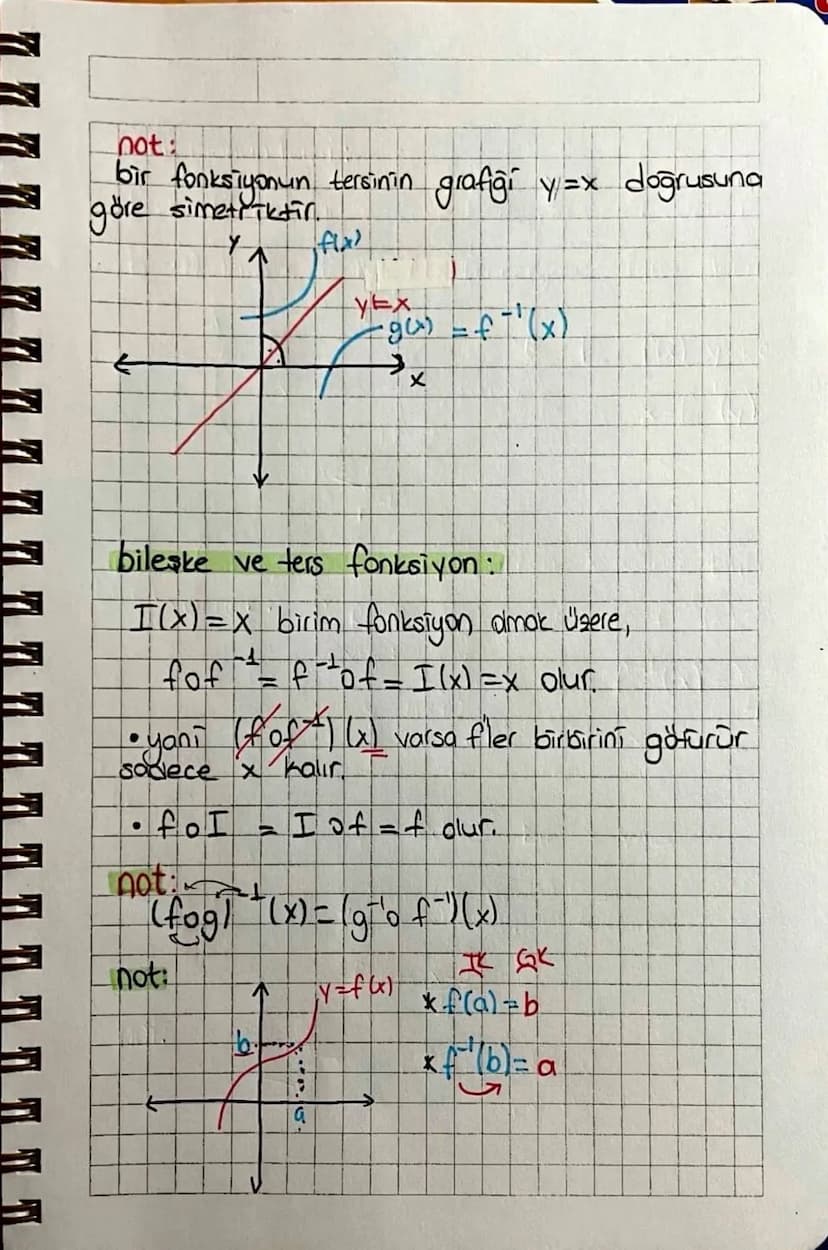 not:
bir fonksiyonun tersinin grafiği y=x doğrusuna
göre simetriktir.
y
f(x)
y=x
g(x) = f⁻¹(x)
x
bileşke ve ters fonksiyon:
I(x)=x birim fonksiyon olmak üzere,
fof⁻¹= f⁻¹of= I(x)=x olur.
• yani (fof⁻¹)(x) varsa f'ler birbirini götürür
sadece x kalır.
• foI = Iof = f olur.
not:
(fog)⁻¹(x)=(g⁻¹o f⁻¹)(x)
not:
İK ÇK
y=f(x)
* f(a)=b
b
* f⁻¹(b)= a
a